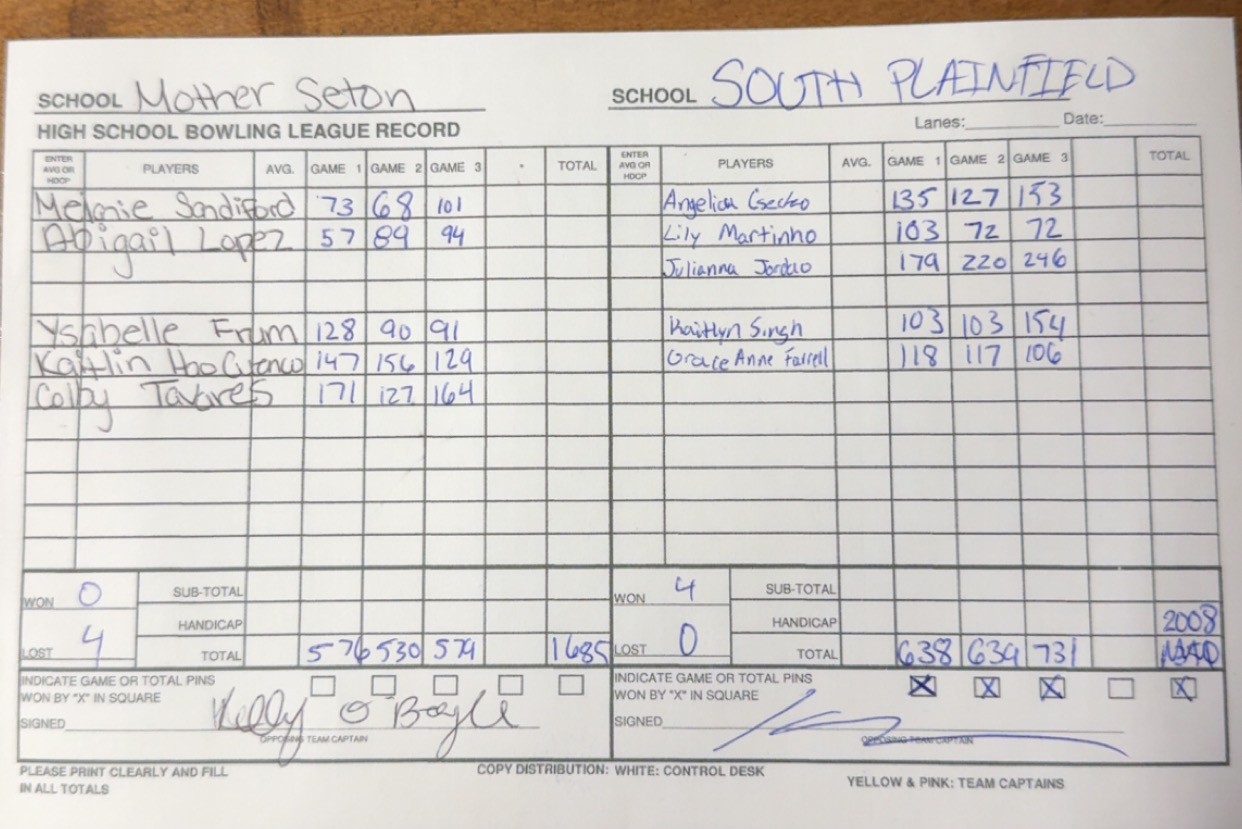 SCHOOL Mother Seton SCHOOL SOUTH PLAINFIELD
HIGH SCHOOL BOWLING LEAGUE RECORD Lanes: Date:
ENTER AVG OR HDCP PLAYERS AVG. GAME 1 GAME 2 GAME 3 TOTAL ENTER AVG OR HDCP PLAYERS AVG. GAME 1 GAME 2 GAME 3 TOTAL
Melanie Sandiford 73 68 101 Angelica 135 127 153
Abigail Lopez 57 89 94 Lily Martinho 103 72 72
Julianna Jordao 179 220 246
Ysabelle Frum 128 90 91 Kaitlyn Singh 103 103 154
Kaitlin 147 156 129 Grace Anne Farrell 118 117 106
Colby Tavares 171 127 164
WON 0 SUB-TOTAL WON 4 SUB-TOTAL
HANDICAP HANDICAP 2008
LOST 4 TOTAL 576 530 579 1685 LOST 0 TOTAL 638 639 731
INDICATE GAME OR TOTAL PINS INDICATE GAME OR TOTAL PINS
WON BY "X" IN SQUARE WON BY "X" IN SQUARE X X X X
SIGNED Kelly O'Boyle SIGNED
OPPOSING TEAM CAPTAIN OPPOSING TEAM CAPTAIN
PLEASE PRINT CLEARLY AND FILL COPY DISTRIBUTION: WHITE: CONTROL DESK YELLOW & PINK: TEAM CAPTAINS
IN ALL TOTALS